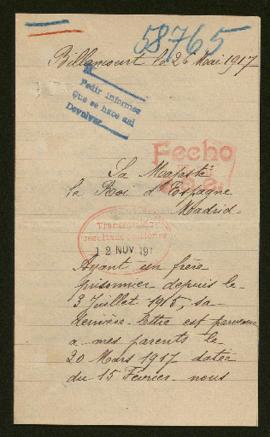 58765
Billancourt le 26 Mai 1917
Pedir informes
Que se hace así
Devolver
Fecho
Sa Majesté
le Roi d'Espagne
Madrid
12 NOV. 191
Ayant un frère
prisonnier depuis le
3 Juillet 1915, sa
dernière lettre est parvenue
a mes parents le
20 Mars 1917 datée
du 15 Février. nous